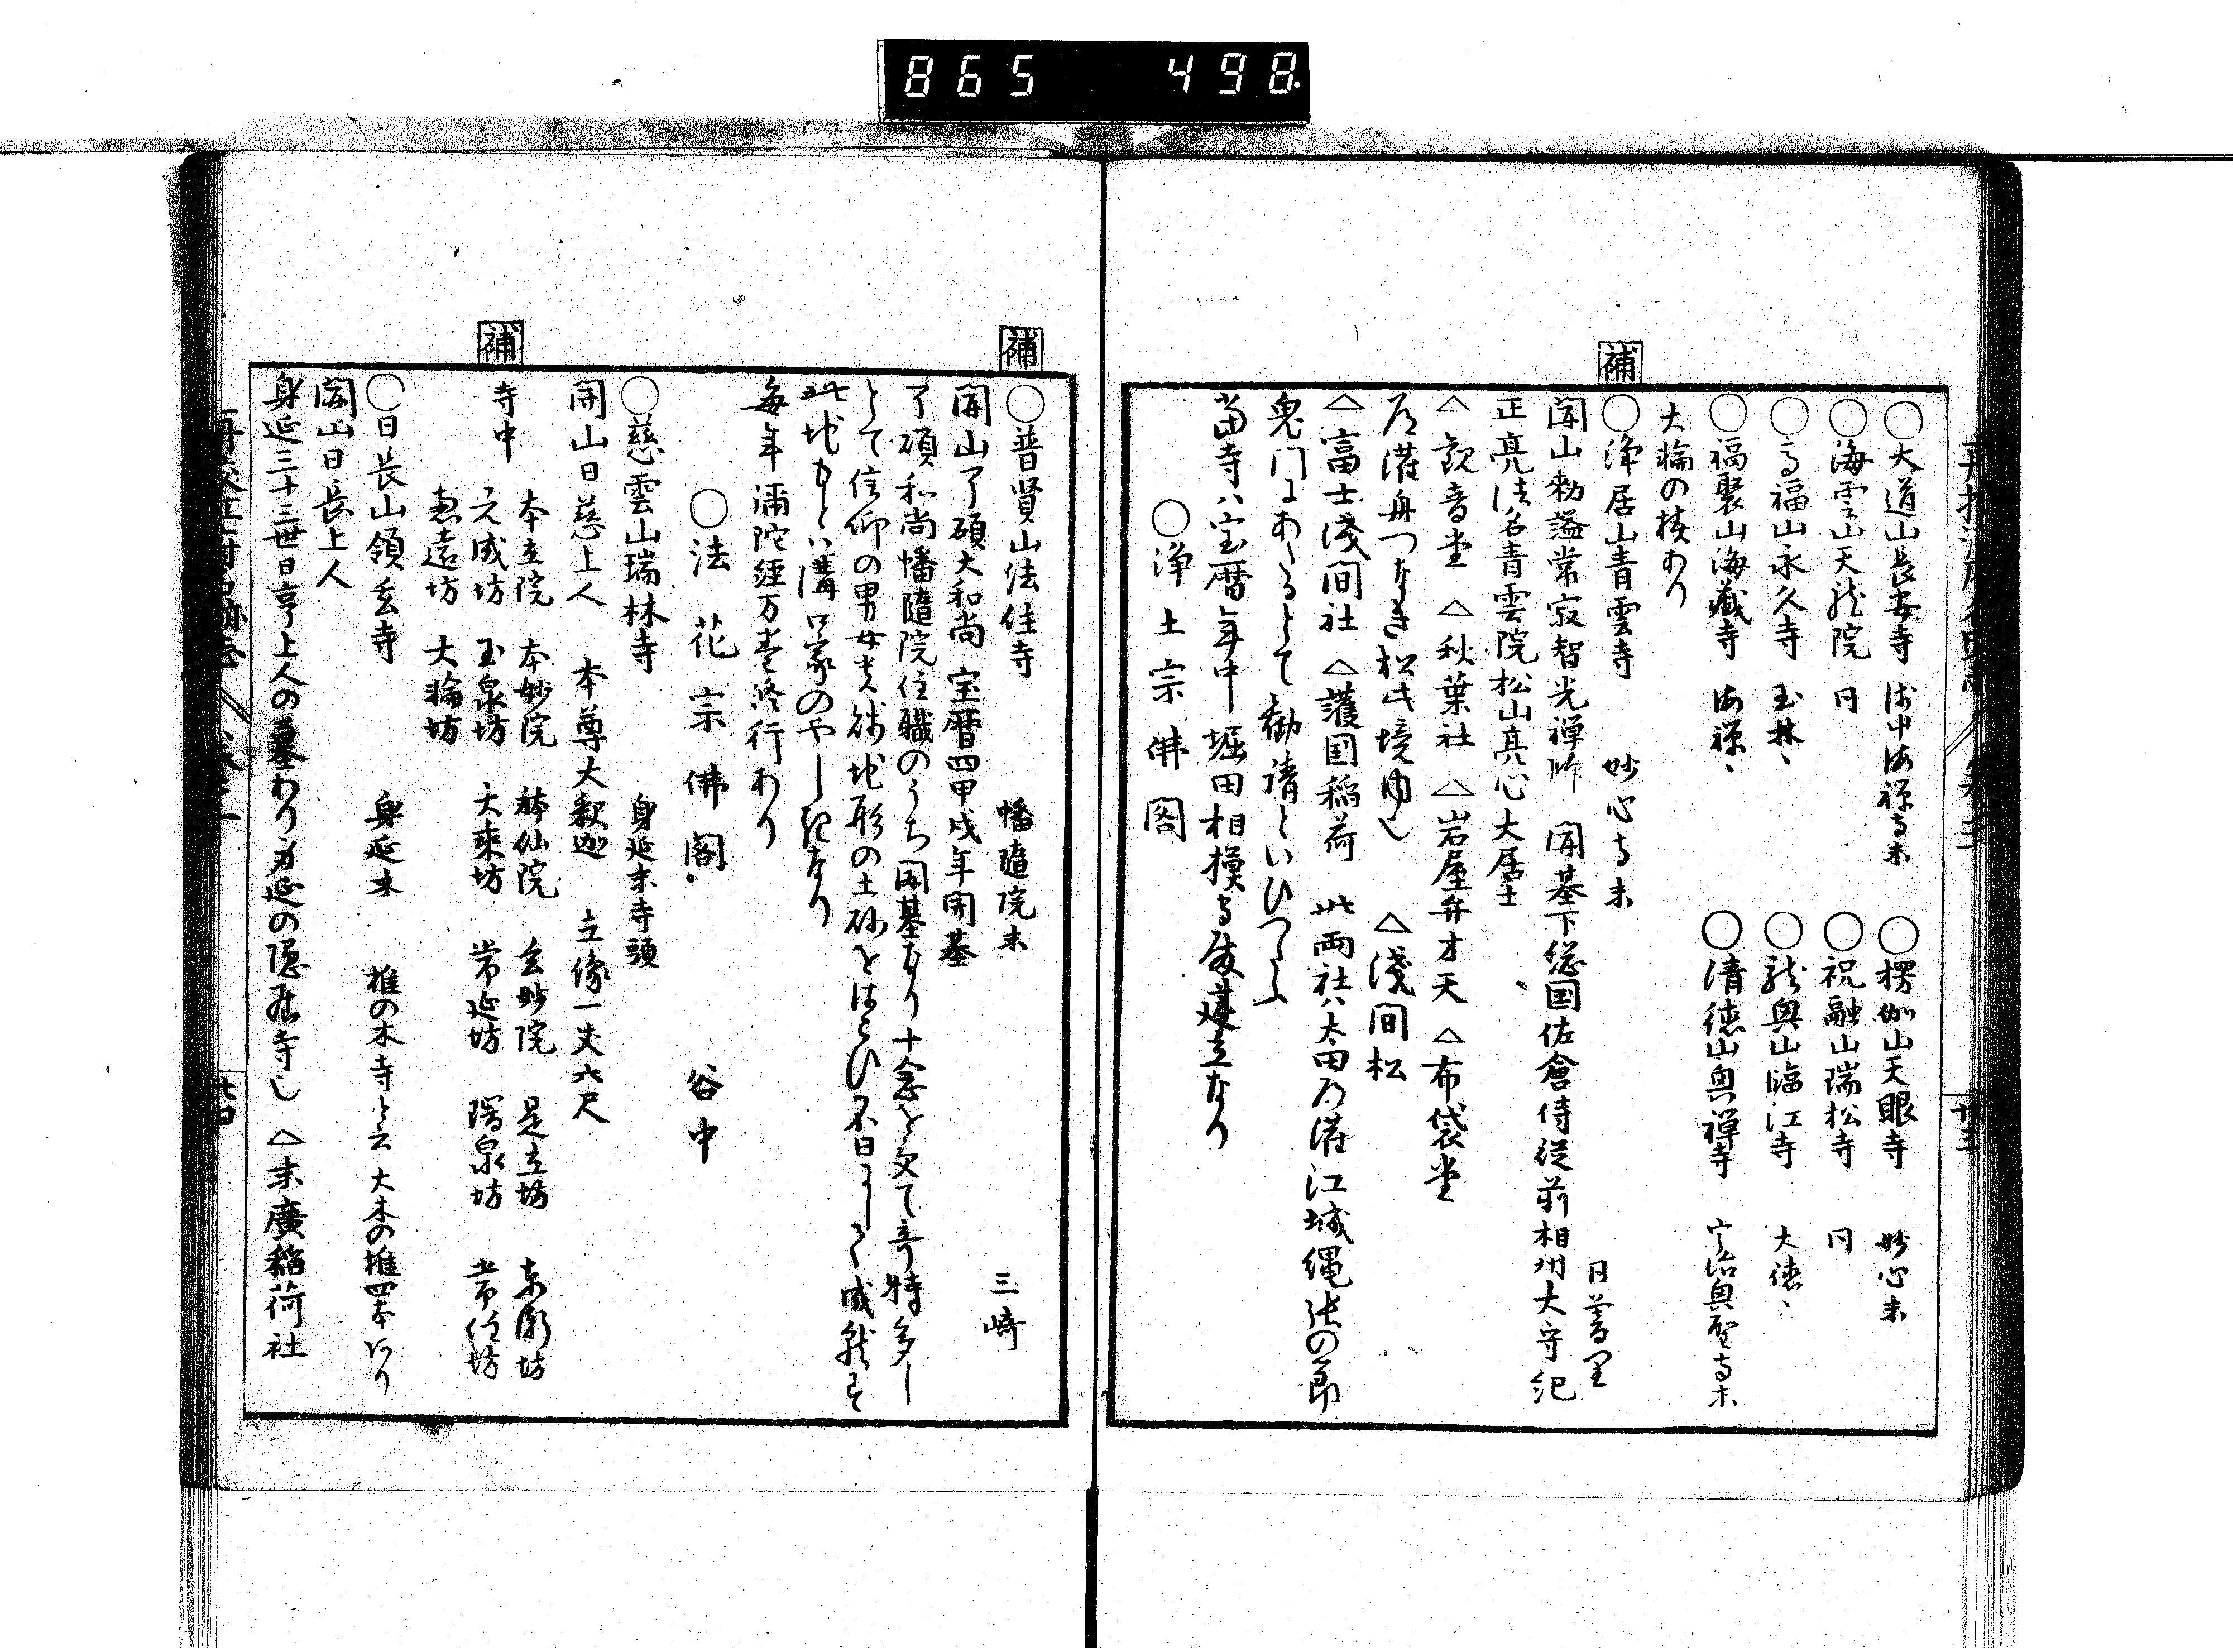 865 498
○大道山長安寺 浅中海禅寺末 ○楞伽山天眼寺 妙心末
○海雲山天龍院 同 ○祝融山瑞松寺 同
○高福山永久寺 玉林〃 ○龍興山臨江寺 大徳〃
○福聚山海蔵寺 海禅〃 ○清徳山興禅寺 宇治興聖寺末
大輪の椿あり
補
○浄居山青雲寺 妙心寺末 日暮里
開山勅謚常寂智光禅師 開基下総国佐倉侍従前相州大守紀
正亮法名青雲院松山亮心大居士
△観音堂 △秋葉社 △岩屋弁才天 △布袋堂
道灌舟つなき松此境内也 △浅間松
△富士浅間社 △護国稲荷 此両社ハ太田道灌江城縄張の節
鬼门にあたるとて勧請といひつたふ
当寺ハ宝暦年中堀田相模守殿建立なり
○浄土宗佛閣
補
○普賢山法住寺 幡随院末 三崎
開山了碩大和尚 宝暦四甲戌年開基
了碩和尚幡随院住職のうち開基なり十念を受て奇特多し
とて信仰の男女老幼地形の土砂をはこひ不日にして成就す
此地もとハ溝口家のやしき也なり
毎年彌陀經万巻修行あり
○法花宗佛閣 谷中
○慈雲山瑞林寺 身延末寺頭
開山日慈上人 本尊大釈迦 立像一丈六尺
補
寺中 本立院 本妙院 体仙院 玄妙院 是立坊 東漸坊
元成坊 玉泉坊 大乗坊 常延坊 瑞泉坊 常住坊
恵遠坊 大輪坊
○日長山領玄寺 身延末 椎の木寺と云 大木の椎四本あり
開山日長上人
身延三十三世日亨上人の墓あり身延の隠居寺也 △末廣稲荷社